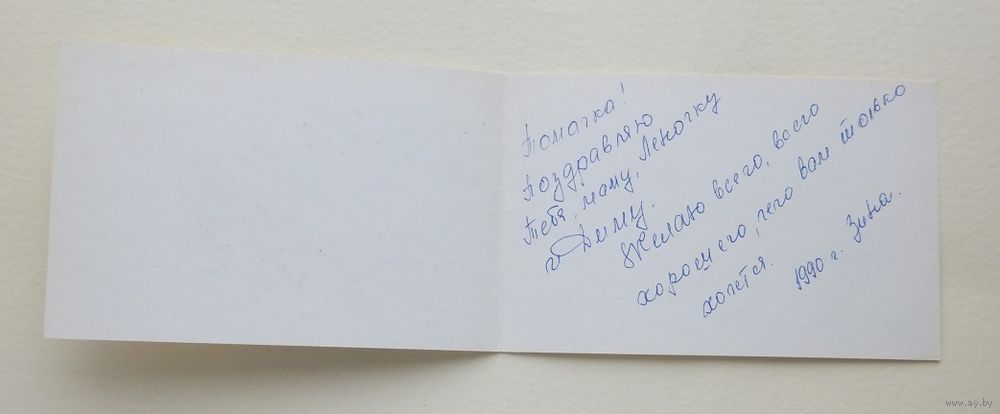 Томочка!
Поздравляю
Тебя, маму, Леночку
и Диму.
Желаю всего, всего
хорошего, чего вам только
хочется.
1990 г. Зина.
www.ay.by